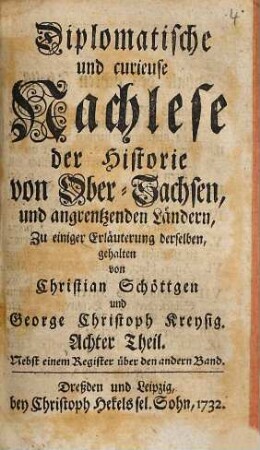 4.
Diplomatische
und curieuse
Nachlese
der Historie
von Ober-Sachsen,
und angrentzenden Ländern,
Zu einiger Erläuterung derselben,
gehalten
von
Christian Schöttgen
und
George Christoph Kreysig.
Achter Theil.
Nebst einem Register über den andern Band.
Dreßden und Leipzig,
bey Christoph Hekels sel. Sohn, 1732.